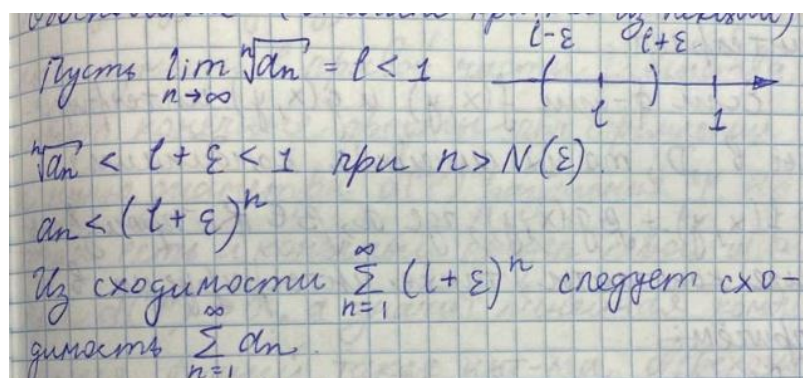 l-ε l+ε
Пусть lim ⁿ√aₙ = l < 1
n→∞
l 1
ⁿ√aₙ < l + ε < 1 при n > N(ε).
aₙ < (l + ε)ⁿ
Из сходимости ∞∑n=1 (l + ε)ⁿ следует схо-
димость ∞∑n=1 aₙ.